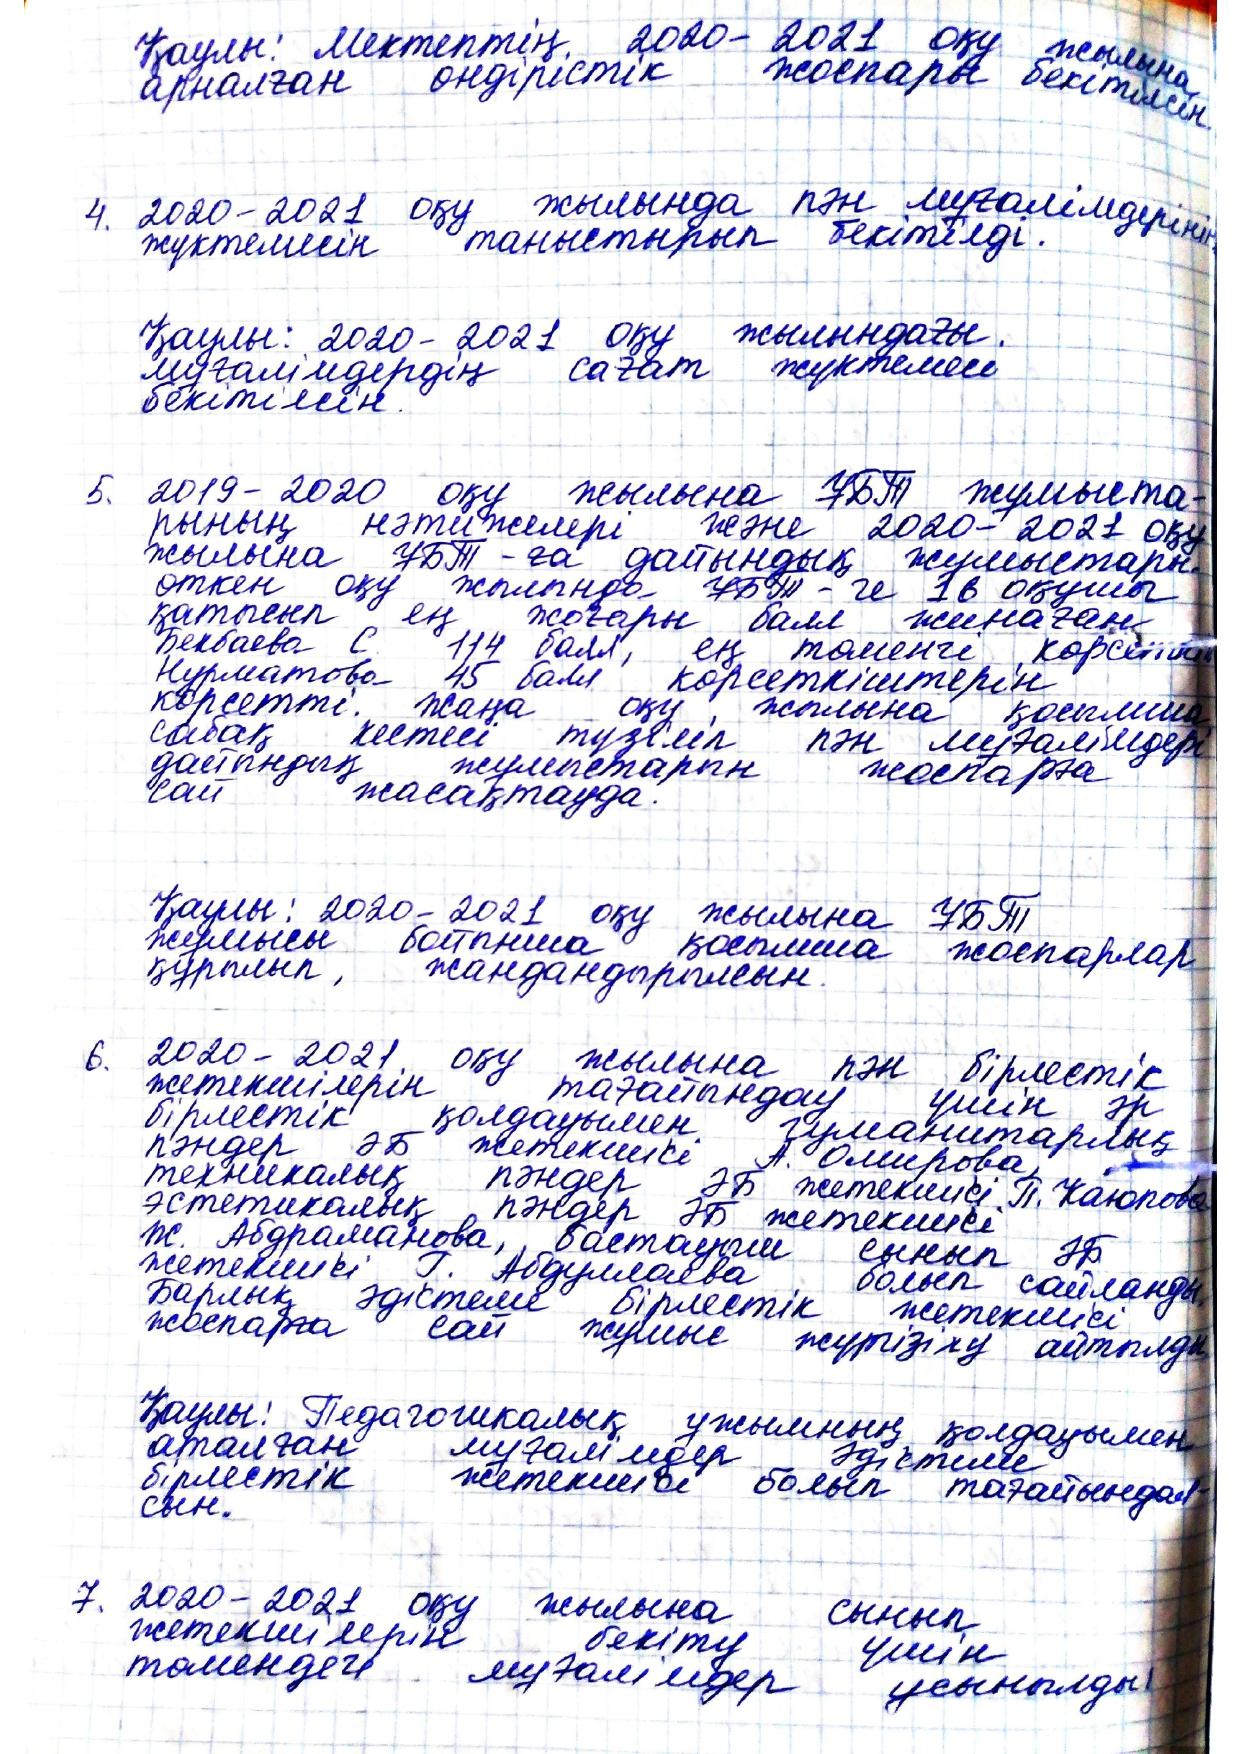 Қаулы: Мектептің 2020-2021 оқу жылына
арналған өндірістік жоспары бекітілсін.
4. 2020-2021 оқу жылында пән мұғалімдерінің
жүктемесін таныстырып бекітілді.
Қаулы: 2020-2021 оқу жылындағы.
мұғалімдердің сағат жүктемесі
бекітілсін.
5. 2019-2020 оқу жылына ҰБТ жұмыста-
рының нәтижелері және 2020-2021 оқу
жылына ҰБТ-ға дайындық жұмыстары.
өткен оқу жылында ҰБТ-ге 16 оқушы
қатысып ең жоғары балл жинаған
Бекбаева С. 114 балл, ең төменгі
Нурматова 45 балл көрсеткіштерін
көрсетті. Жаңа оқу жылына қосымша
сабақ кестесі түзіліп пән мұғалімдері
дайындық жұмыстарын жоспарға
сай жасақтауда.
Қаулы: 2020-2021 оқу жылына ҰБТ
жұмысы бойынша қосымша жоспарлар
құрылып, жандандырылсын.
6. 2020-2021 оқу жылына пән бірлестік
жетекшілерін тағайындау үшін әр
бірлестік қолдауымен гуманитарлық
пәндер ӘБ жетекшісі А. Омирова,
техникалық пәндер ӘБ жетекшісі П. Каюпова
эстетикалық пәндер ӘБ жетекшісі
Ж. Абдраманова, бастауыш сынып ӘБ
жетекшісі Г. Абдуллаева болып сайланды.
Барлық әдістеме бірлестік жетекшісі
жоспарға сай жұмыс жүргізілу айтылды
Қаулы: Педагогикалық ұжымның қолдауымен
аталған мұғалімдер әдістеме
бірлестік жетекшісі болып тағайындал-
сын.
7. 2020-2021 оқу жылына сынып
жетекшілерін бекіту үшін
төмендегі мұғалімдер ұсынылды: